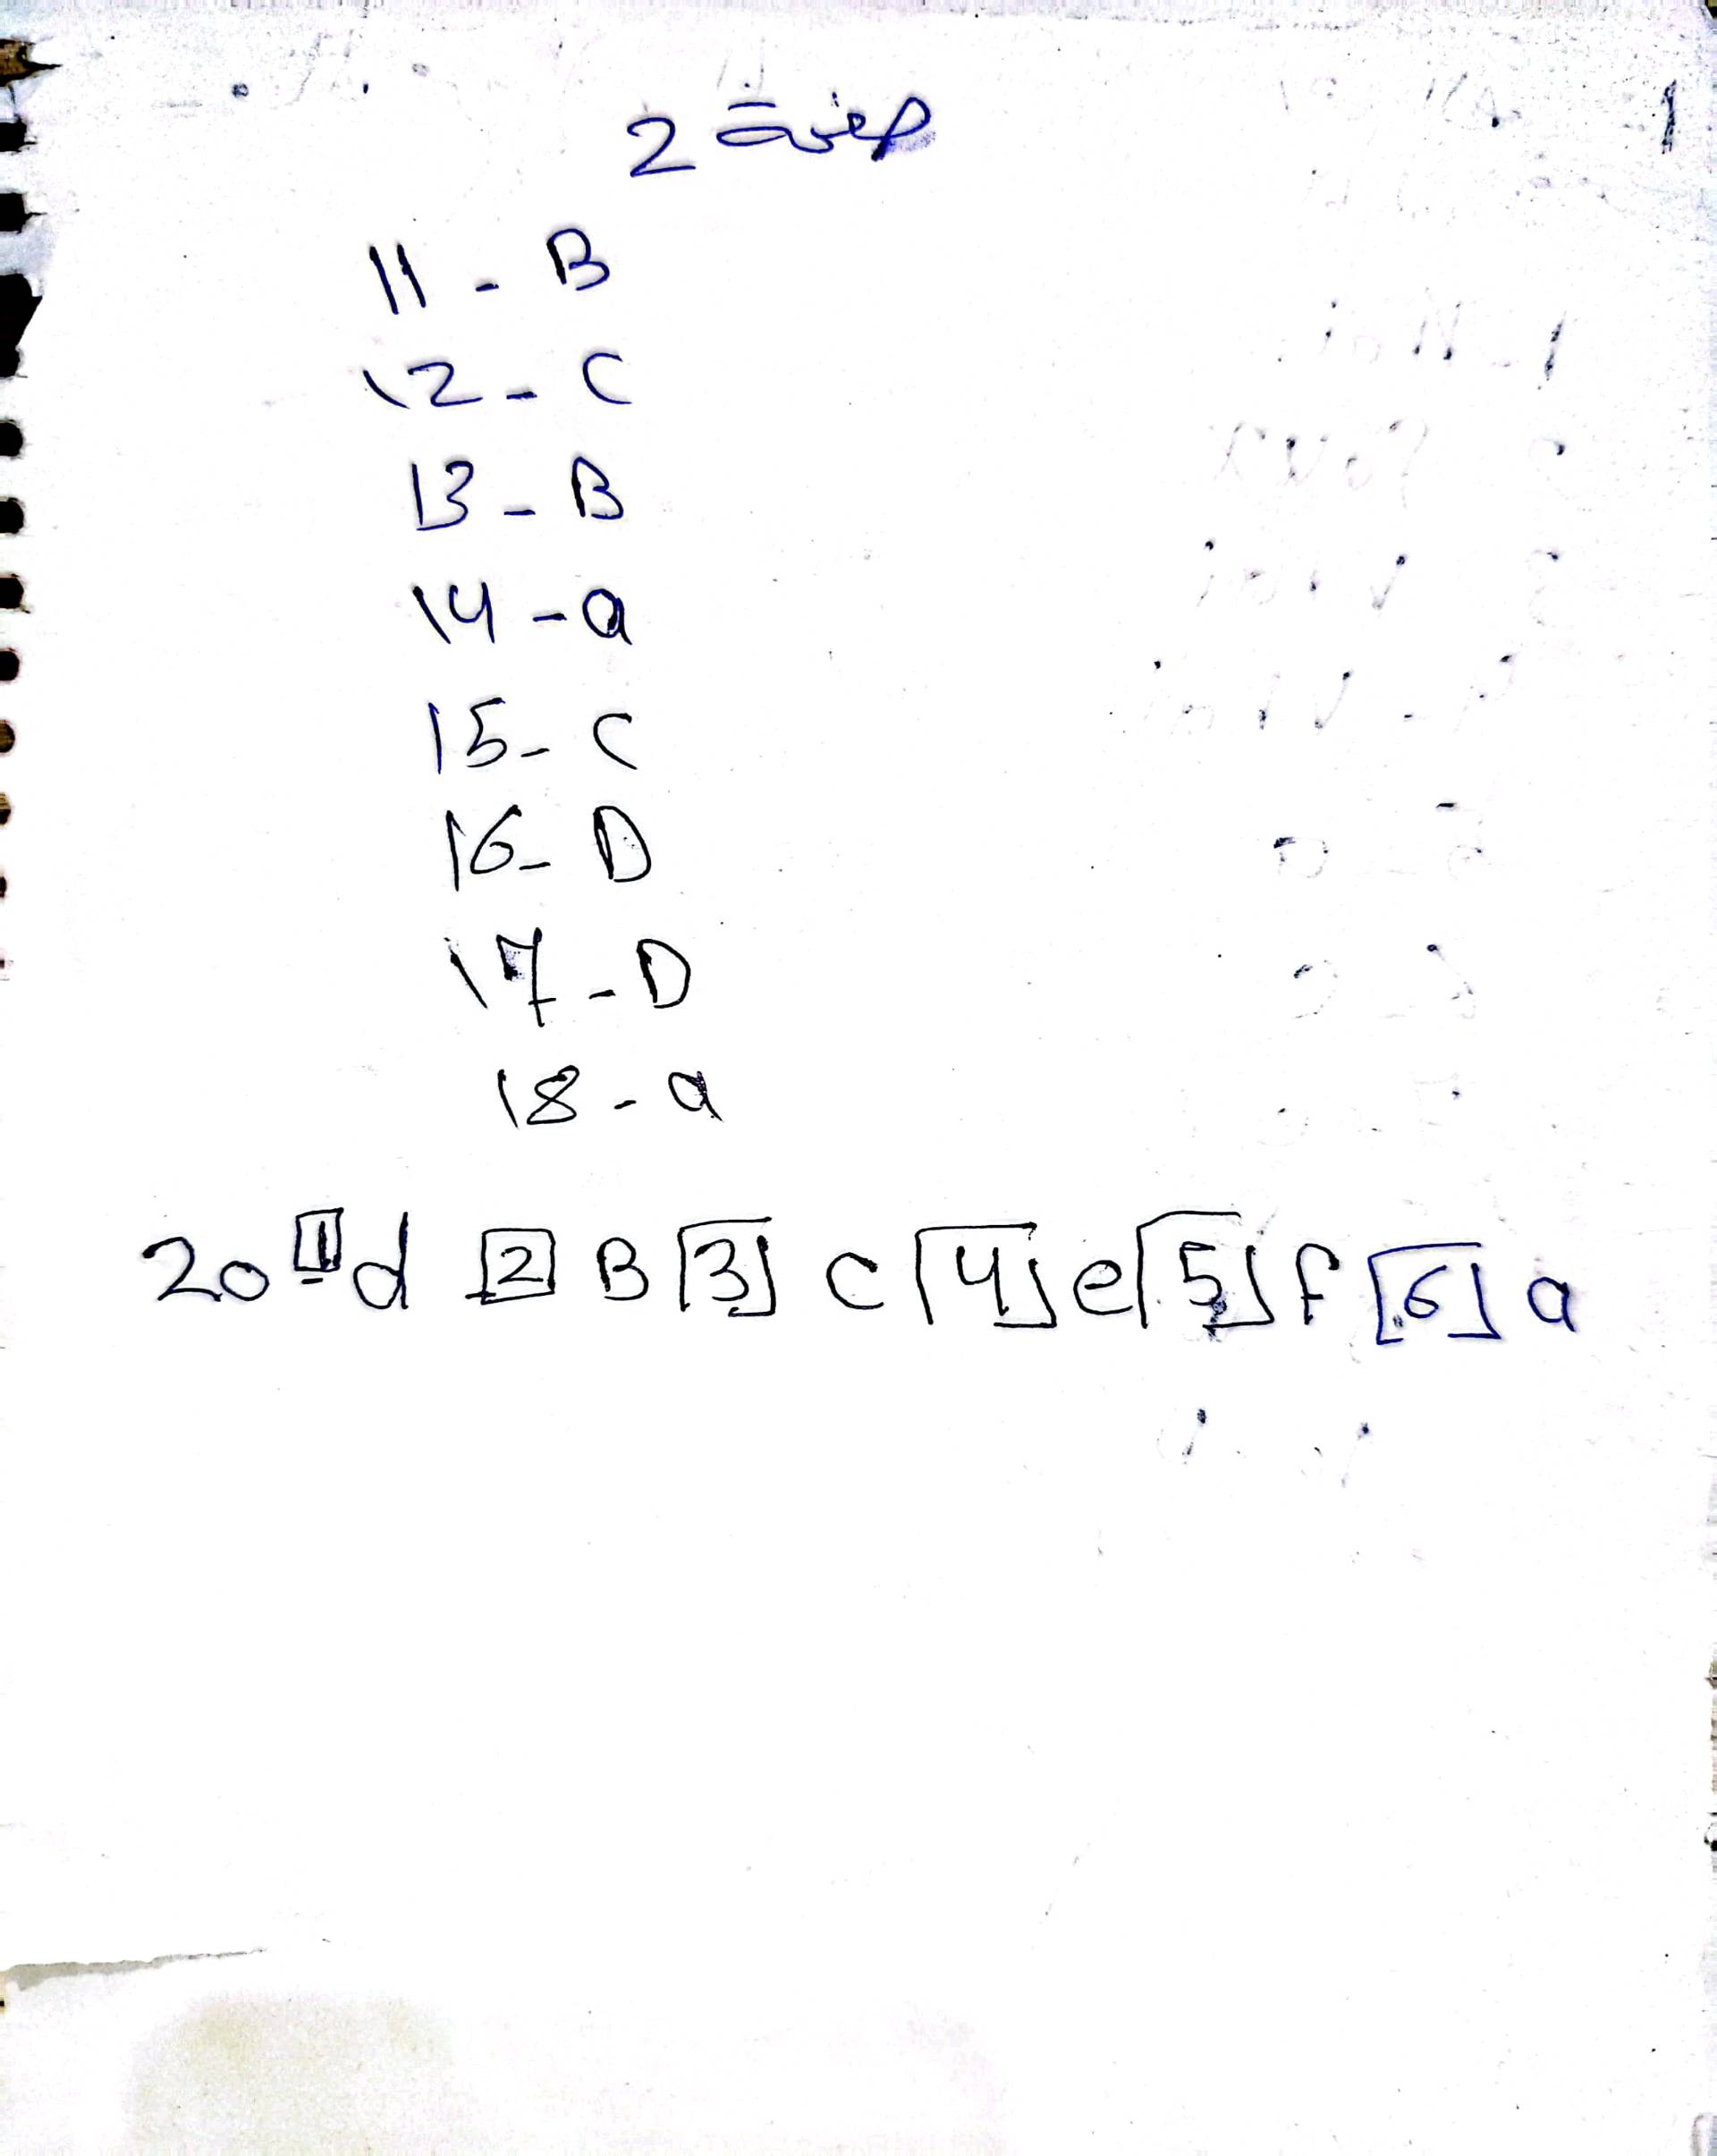 صفحة 2
11 - B
12 - C
13 - B
14 - a
15 - C
16 - D
17 - D
18 - a
20 1 d 2 B 3 c 4 e 5 f 6 a